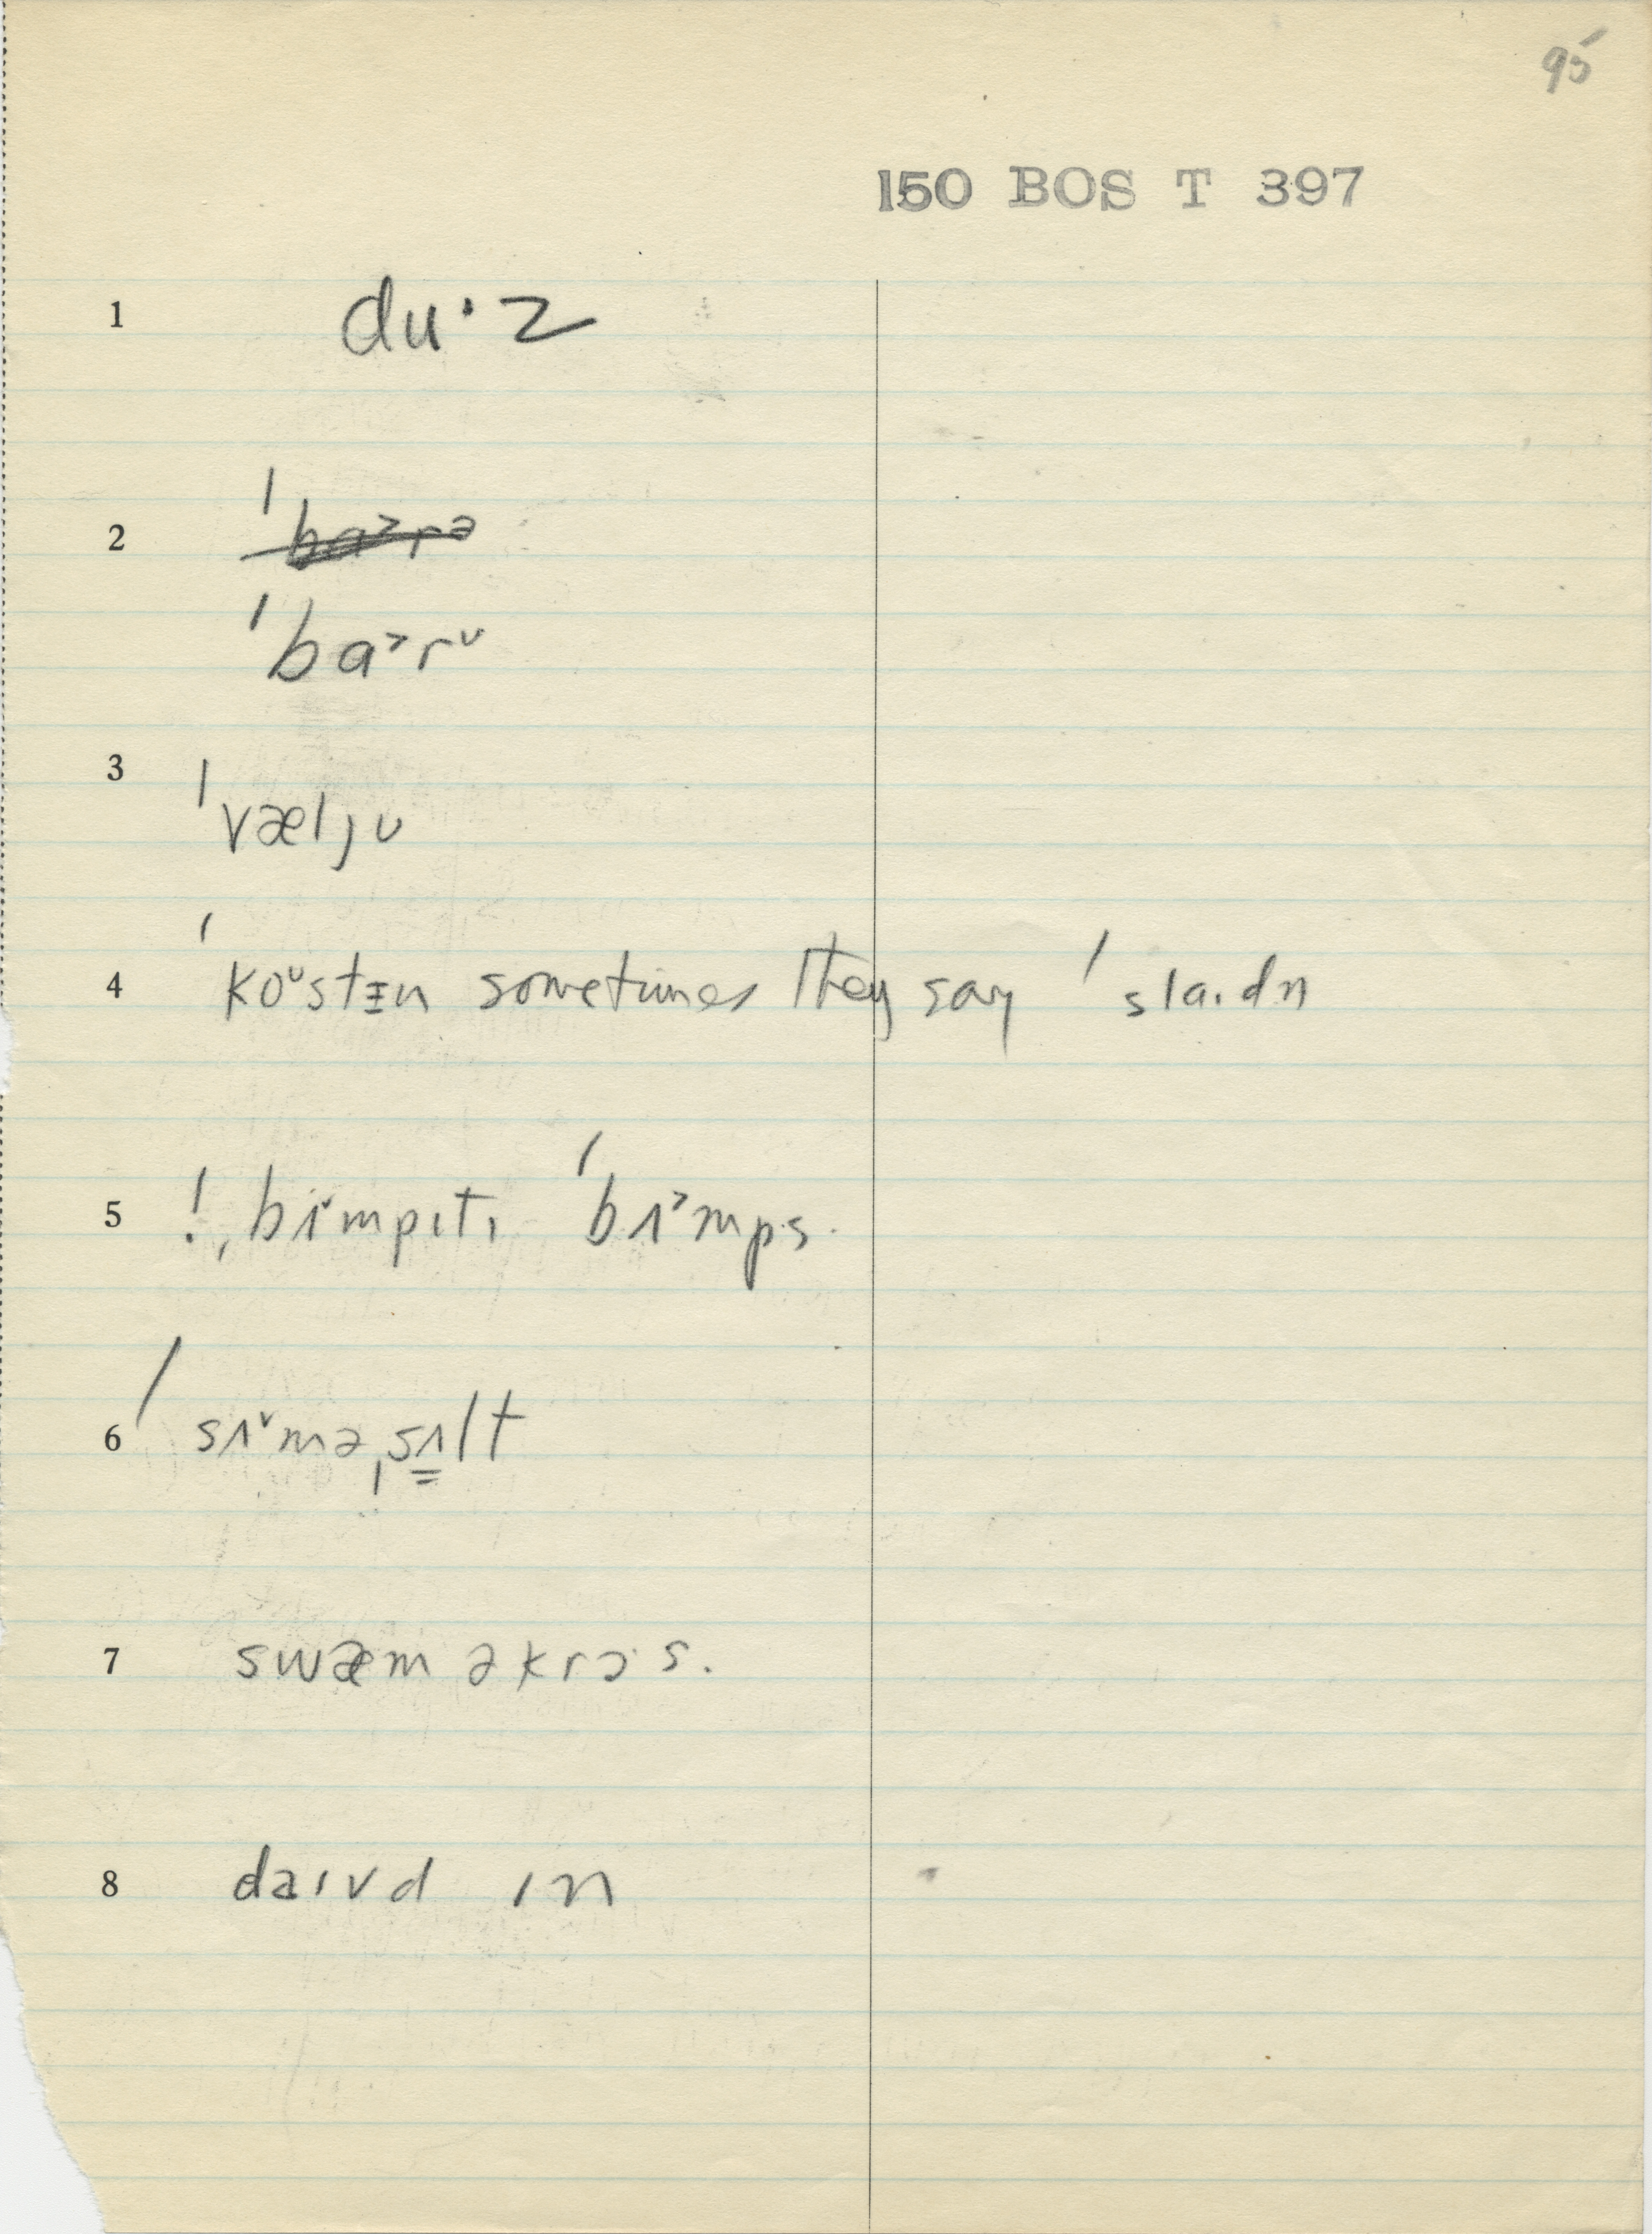 95
150 BOS T 397
1 du·z
2 ˈba˃rə
ˈba˃rᴜ
3 ˈvæljᴜ
4 ˈkoᴜstɪn sometimes they say ˈsla.dn
5 !ˌbʌ˅mpɪtɪ ˈbʌ˃mps.
6 ˈsʌ˅məˌsʌlt
7 swæm əkrɔ·s.
8 daɪvd ɪn